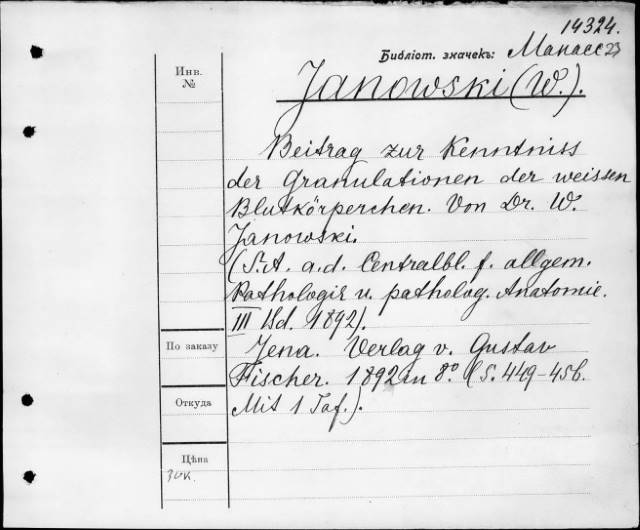 14324.
Библіот. значекъ: Манасс 23
Инв.
№
Janowski (W.).
Beitrag zur Kenntniss
der Granulationen der weissen
Blutkörperchen. Von Dr. W.
Janowski.
(S.A. a.d. Centralbl. f. allgem.
Pathologie u. patholog. Anatomie.
III Bd. 1892).
По заказу
Jena. Verlag v. Gustav
Fischer. 1892 in 8º (S. 449-456.
Откуда
Mit 1 Taf.).
Цѣна
30к.